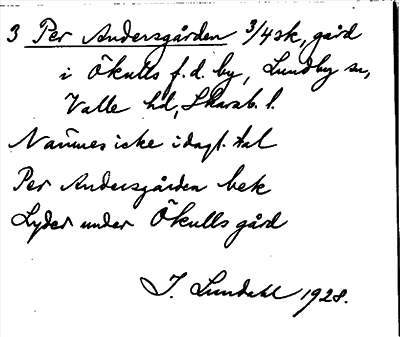 3 Per Andersgården 3/4 sk, gård
i Ökulls f.d. by, Lundby sn,
Valle hd, Skarab. l.
Namnes icke i dagl. tal
Per Andersgården bek
Lyder under Ökulls gård
I. Lundahl 1928.